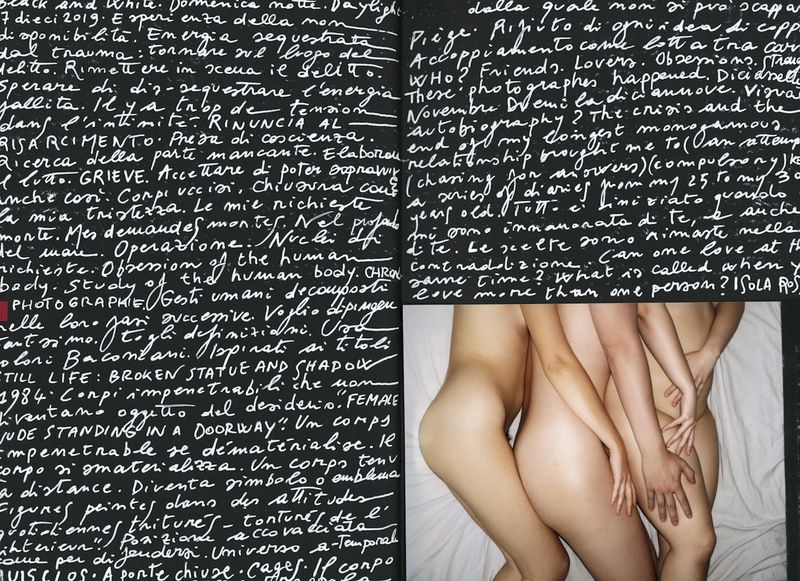 Black and White. Domenica notte. Daylight
7 dieci 2019. Esperienza della non
disponibilità. Energia sequestrata
dal trauma. tornare sul luogo del
delitto. Rimettere in scena il delitto.
Sperare di dis-sequestrare l'energia
fallita. Il y a trop de tension
dans l'intimité. RINUNCIA AL
RISARCIMENTO. Presa di coscienza
Ricerca della parte mancante. Elaborare
il lutto. GRIEVE. Accettare di poter sopravvi
anche così. Corpi uccisi, chiusura
la mia tristezza. Le mie richieste
morte. Mes demandes mortes. Nel profondo
del mare. Operazione. Nuclei di
richieste. Obsession of the human
body. Study of the human body. CHRON
PHOTOGRAPHIE. Gesti umani decomposti
nelle loro fasi successive. Voglio dipingere
tantissimo. togli definizioni. Usa
colori Baconiani. Inspirati ai titoli
STILL LIFE: BROKEN STATUE AND SHADOW
1984. Corpi impenetrabili che non
diventano oggetto del desiderio. "FEMALE
NUDE STANDING IN A DOORWAY". Un corps
impenetrable se dématérialise. Il
corpo si smaterializza. Un corps tenu
a distance. Diventa simbolo o emblema
Figures peintes dans des attitudes
quotidiennes triturés - torturés de l'
intérieur". Posizione accovacciata
come per difendersi. Universo a-temporale
HUIS CLOS. A porte chiuse. Cages. Il corpo
dalla quale non si può scappare
Piège. Rifiuto di ogni idea di coppia
Accoppiamento come lotta tra
WHO? Friends. Lovers. Obsessions. Strangers
These photographer happened. Diciassette
Novembre Duemiladiciannove.
autobiography? The crisis and the
end of my longest monogamous
relationship brought me to (an attempt
(chasing for answers) (compulsory)
a series of diaries from my 25 to my 3
years old. Tutto è iniziato quando
mi sono innamorata di te, e anche
di te. Le scelte sono rimaste nella
contraddizione. Can one love at the
same time? What is called when you
love more than one person? ISOLA ROS